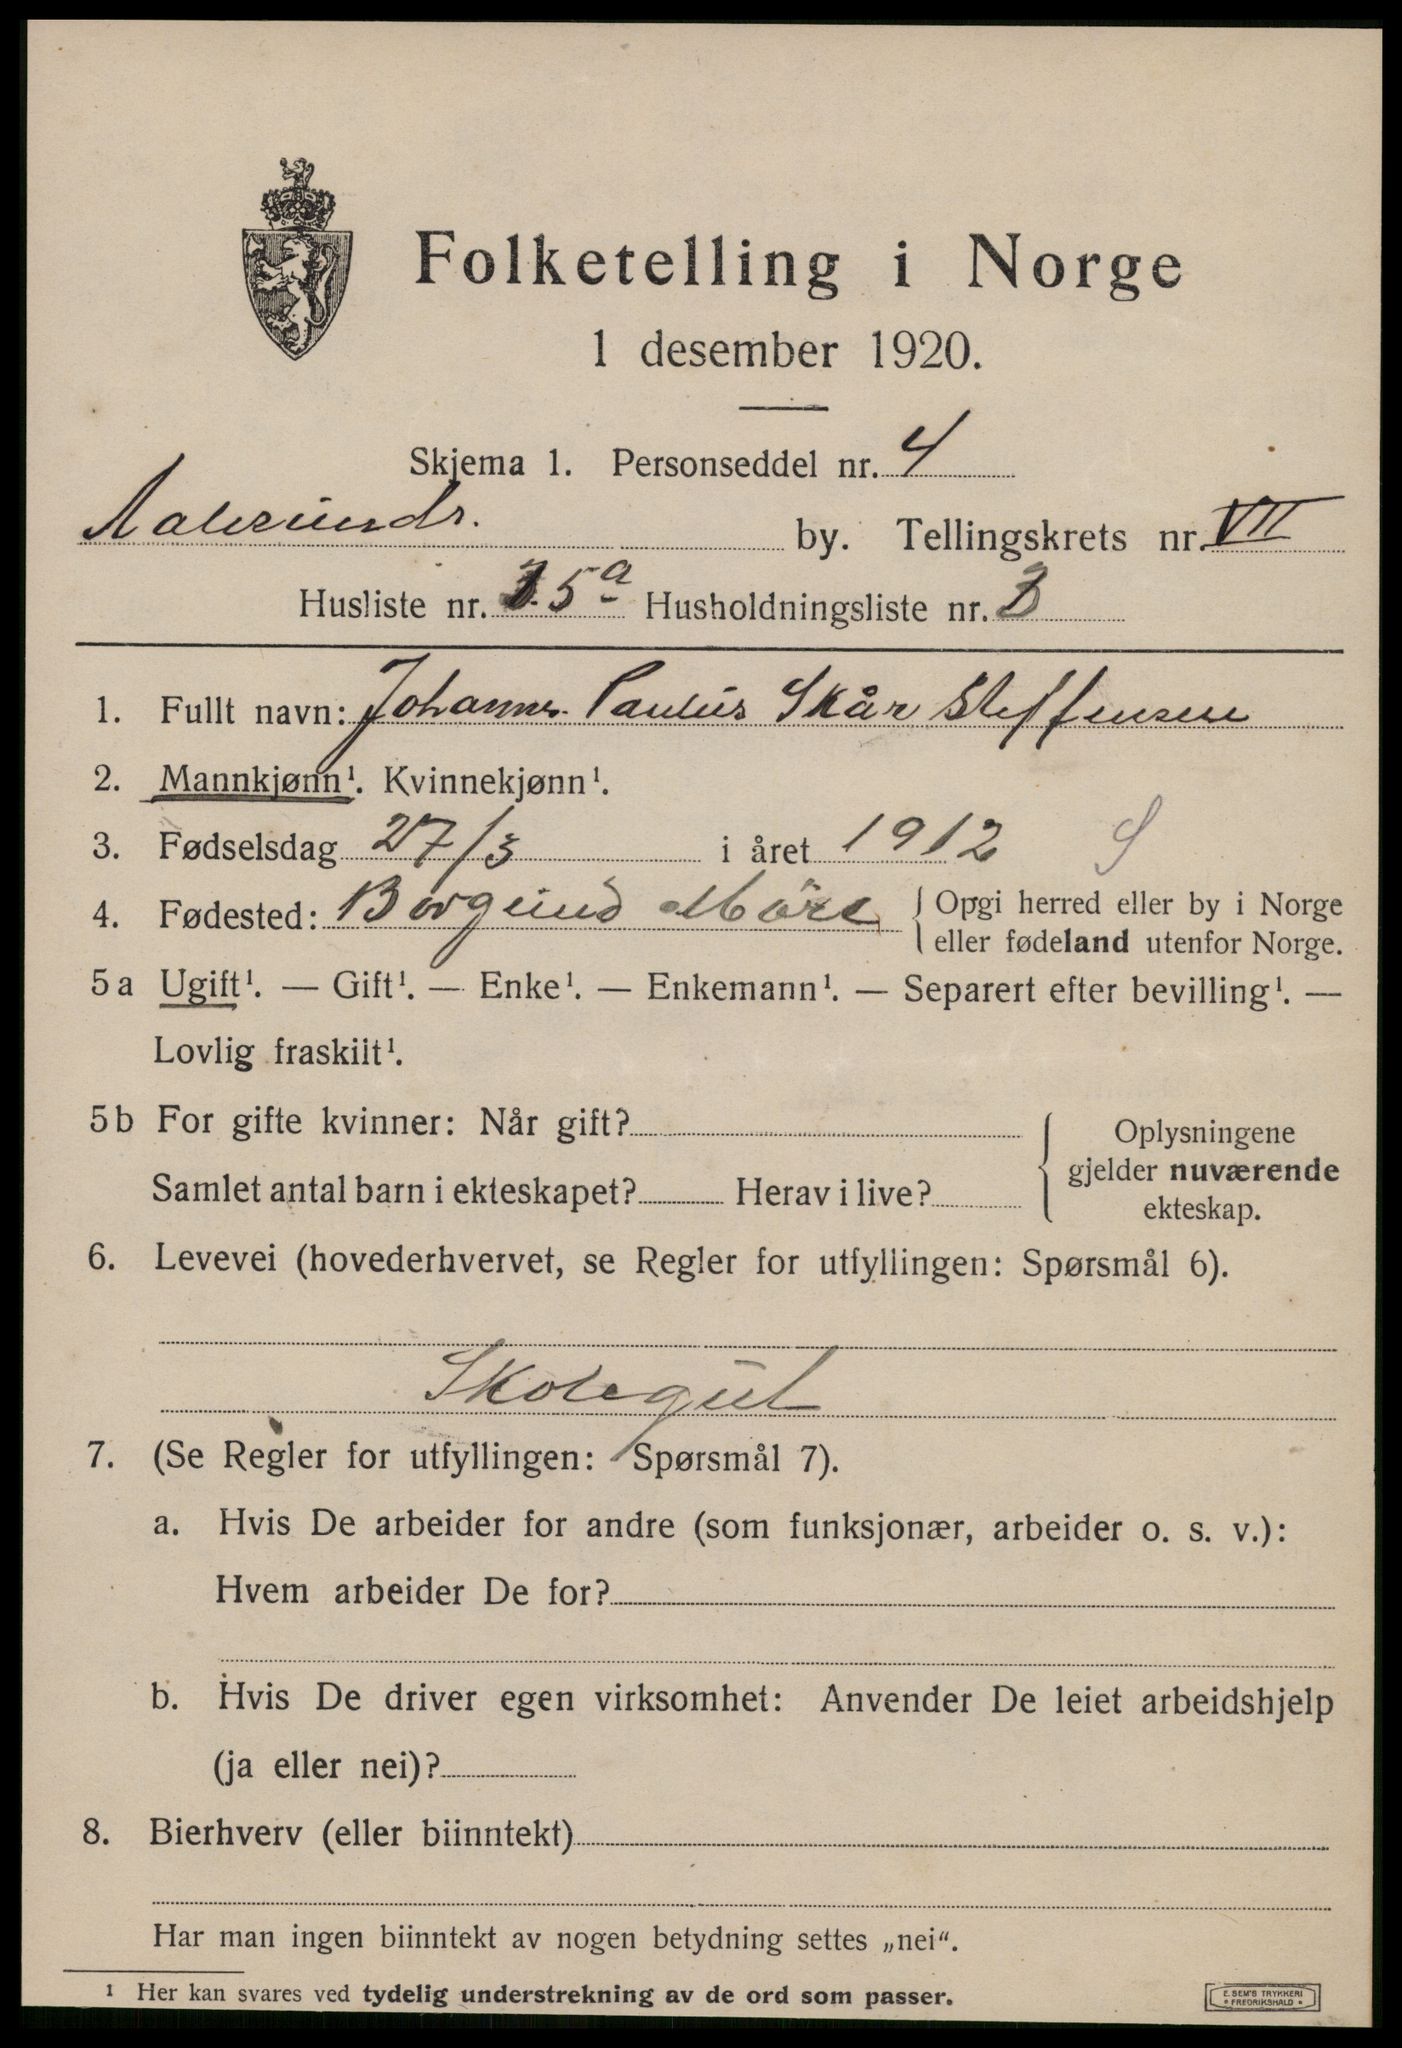 Folketelling i Norge
1 desember 1920.
Skjema 1. Personseddel nr. 4
Aalesunds. by. Tellingskrets nr. VII
Husliste nr. 5a Husholdningsliste nr.
1. Fullt navn: Johannes Paulus Skår Steffensen
2. Mannkjønn¹. Kvinnekjønn¹.
3. Fødselsdag 27/3 i året 1912 S
4. Fødested: Borgund Møre { Opgi herred eller by i Norge
eller fødeland utenfor Norge.
5a Ugift¹. — Gift¹. — Enke¹. — Enkemann¹. — Separert efter bevilling¹. —
Lovlig fraskilt¹.
5b For gifte kvinner: Når gift?
Samlet antal barn i ekteskapet? Herav i live?
{ Oplysningene
gjelder nuværende
ekteskap.
6. Levevei (hovederhvervet, se Regler for utfyllingen: Spørsmål 6).
Skolegut
7. (Se Regler for utfyllingen: Spørsmål 7).
a. Hvis De arbeider for andre (som funksjonær, arbeider o. s. v.):
Hvem arbeider De for?
b. Hvis De driver egen virksomhet: Anvender De leiet arbeidshjelp
(ja eller nei)?
8. Bierhverv (eller biinntekt)
Har man ingen biinntekt av nogen betydning settes „nei“.
¹ Her kan svares ved tydelig understrekning av de ord som passer.
E. SEM'S TRYKKERI
• FREDRIKSHALD •